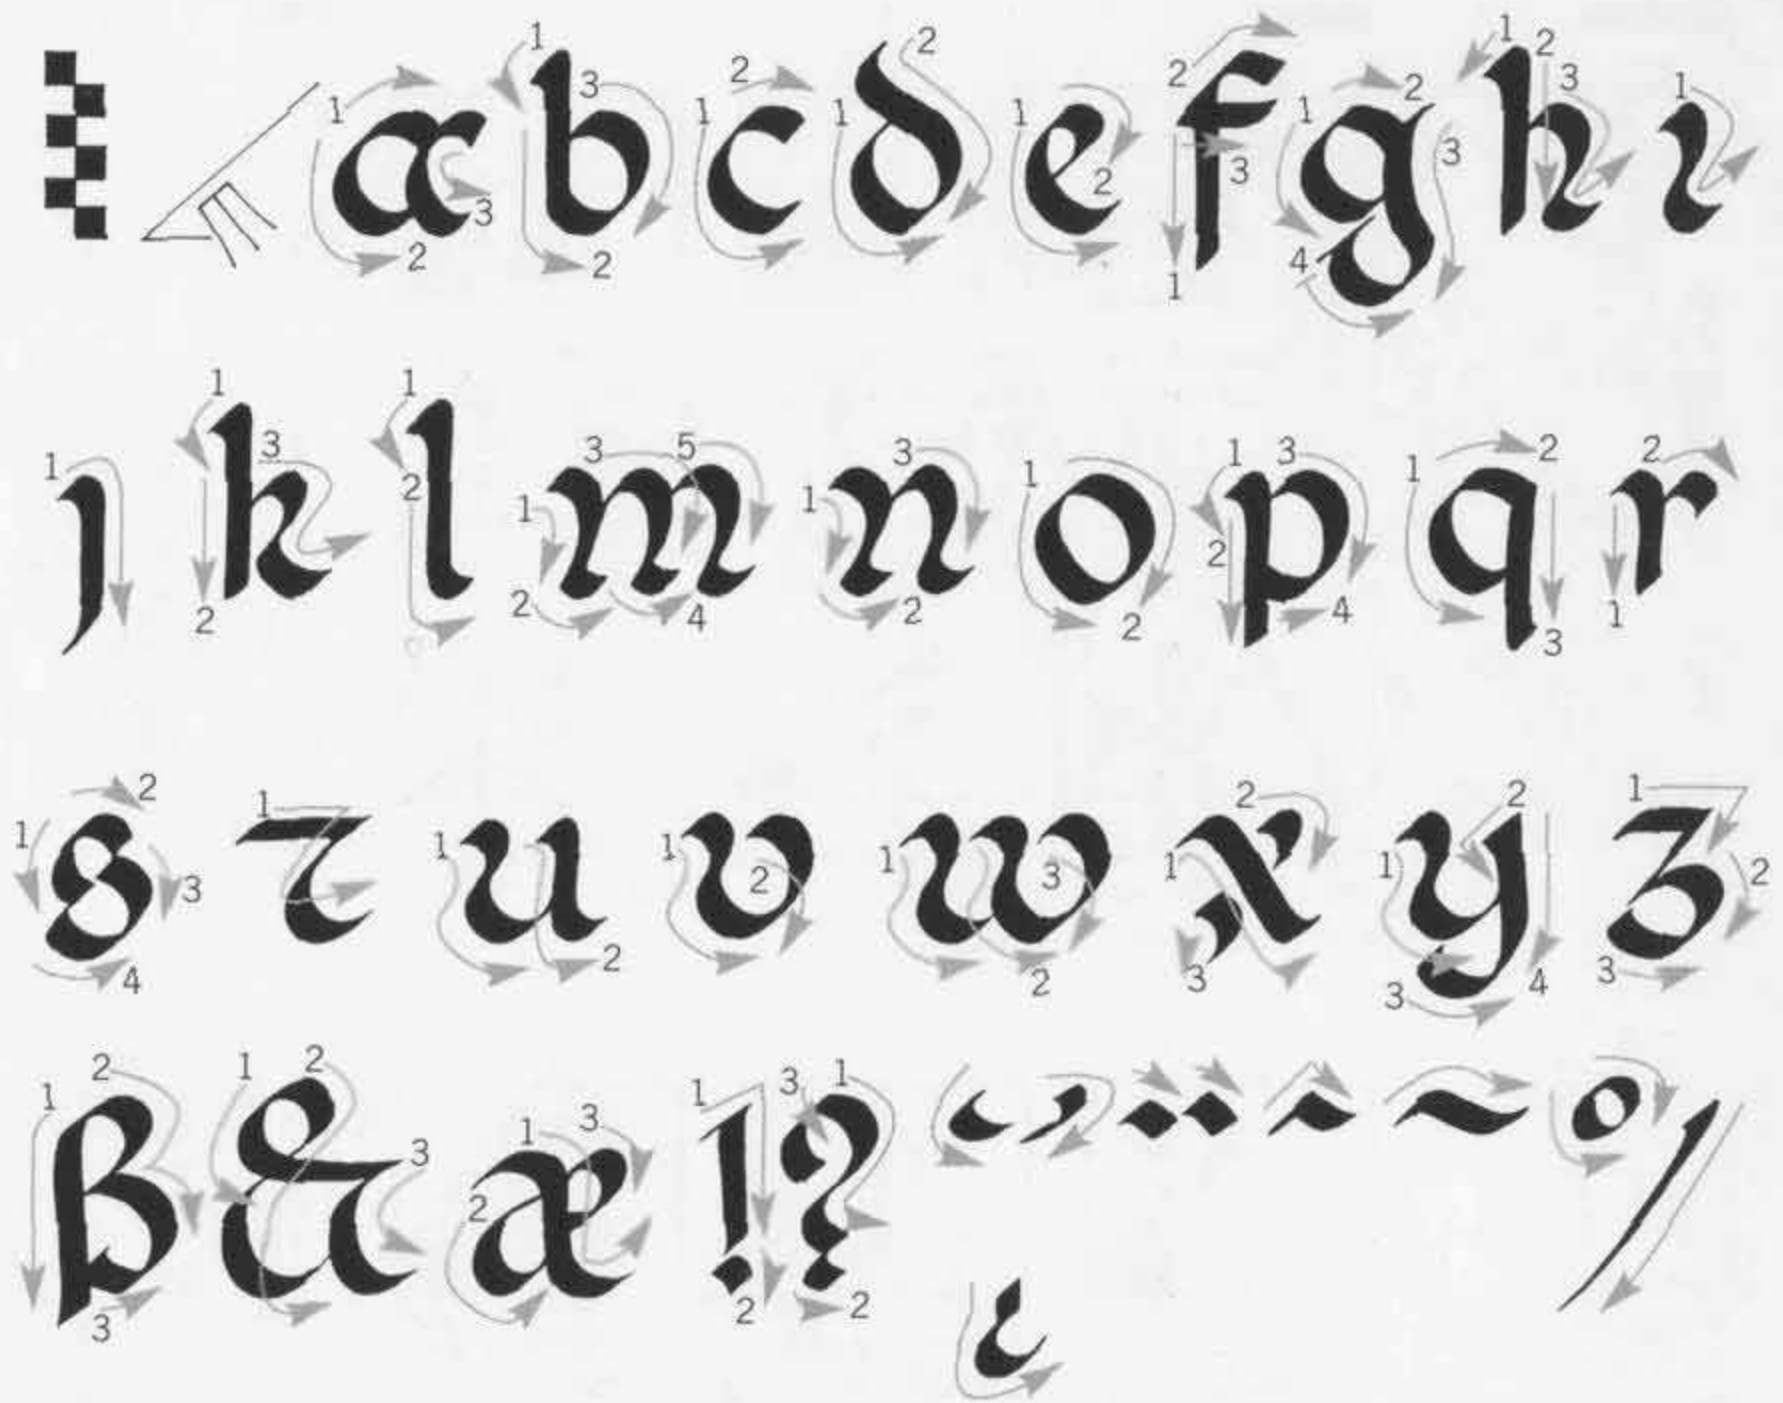 a b c d e f g h ı
ȷ k l m n o p q r
s t u v w x y z
ß & æ ! ?